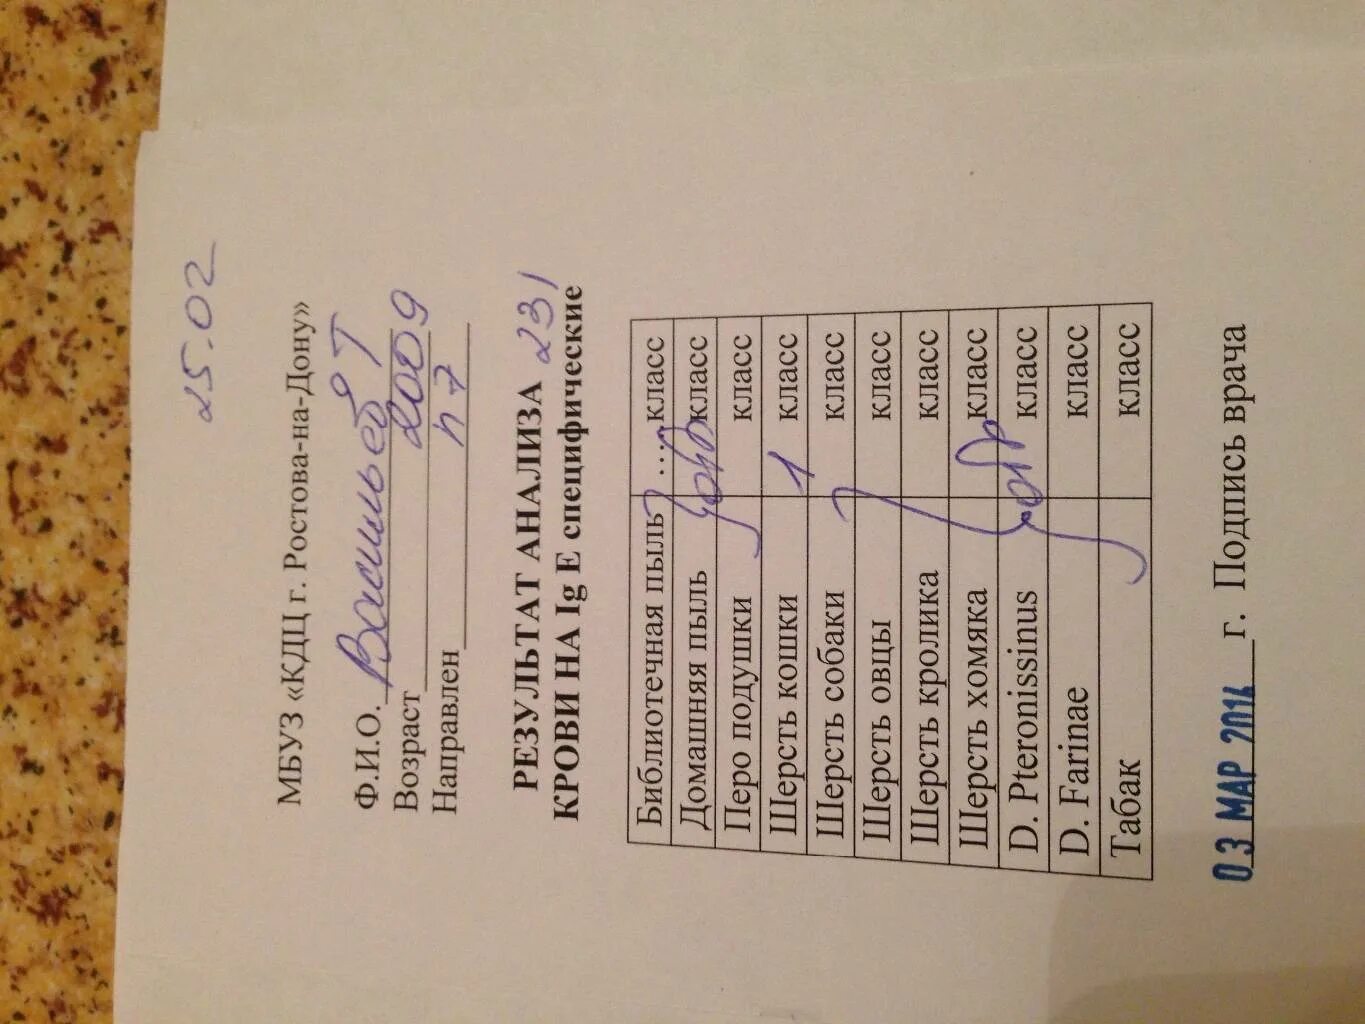 25.02
МБУЗ «КДЦ г. Ростова-на-Дону»
Ф.И.О. Васильев Т
Возраст 2009
Направлен п7
РЕЗУЛЬТАТ АНАЛИЗА 231
КРОВИ НА Ig E специфические
Библиотечная пыль ... класс
Домашняя пыль класс
Перо подушки класс
Шерсть кошки 1 класс
Шерсть собаки класс
Шерсть овцы класс
Шерсть кролика класс
Шерсть хомяка класс
D. Pteronissinus класс
D. Farinae класс
Табак класс
03 МАР 2014 г. Подпись врача